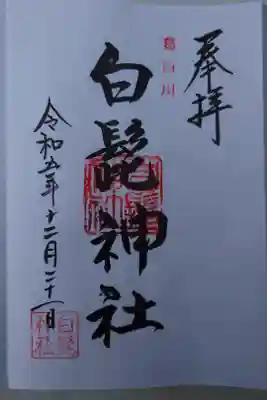 奉拝
白川
白髭神社
令和五年十二月二十一日